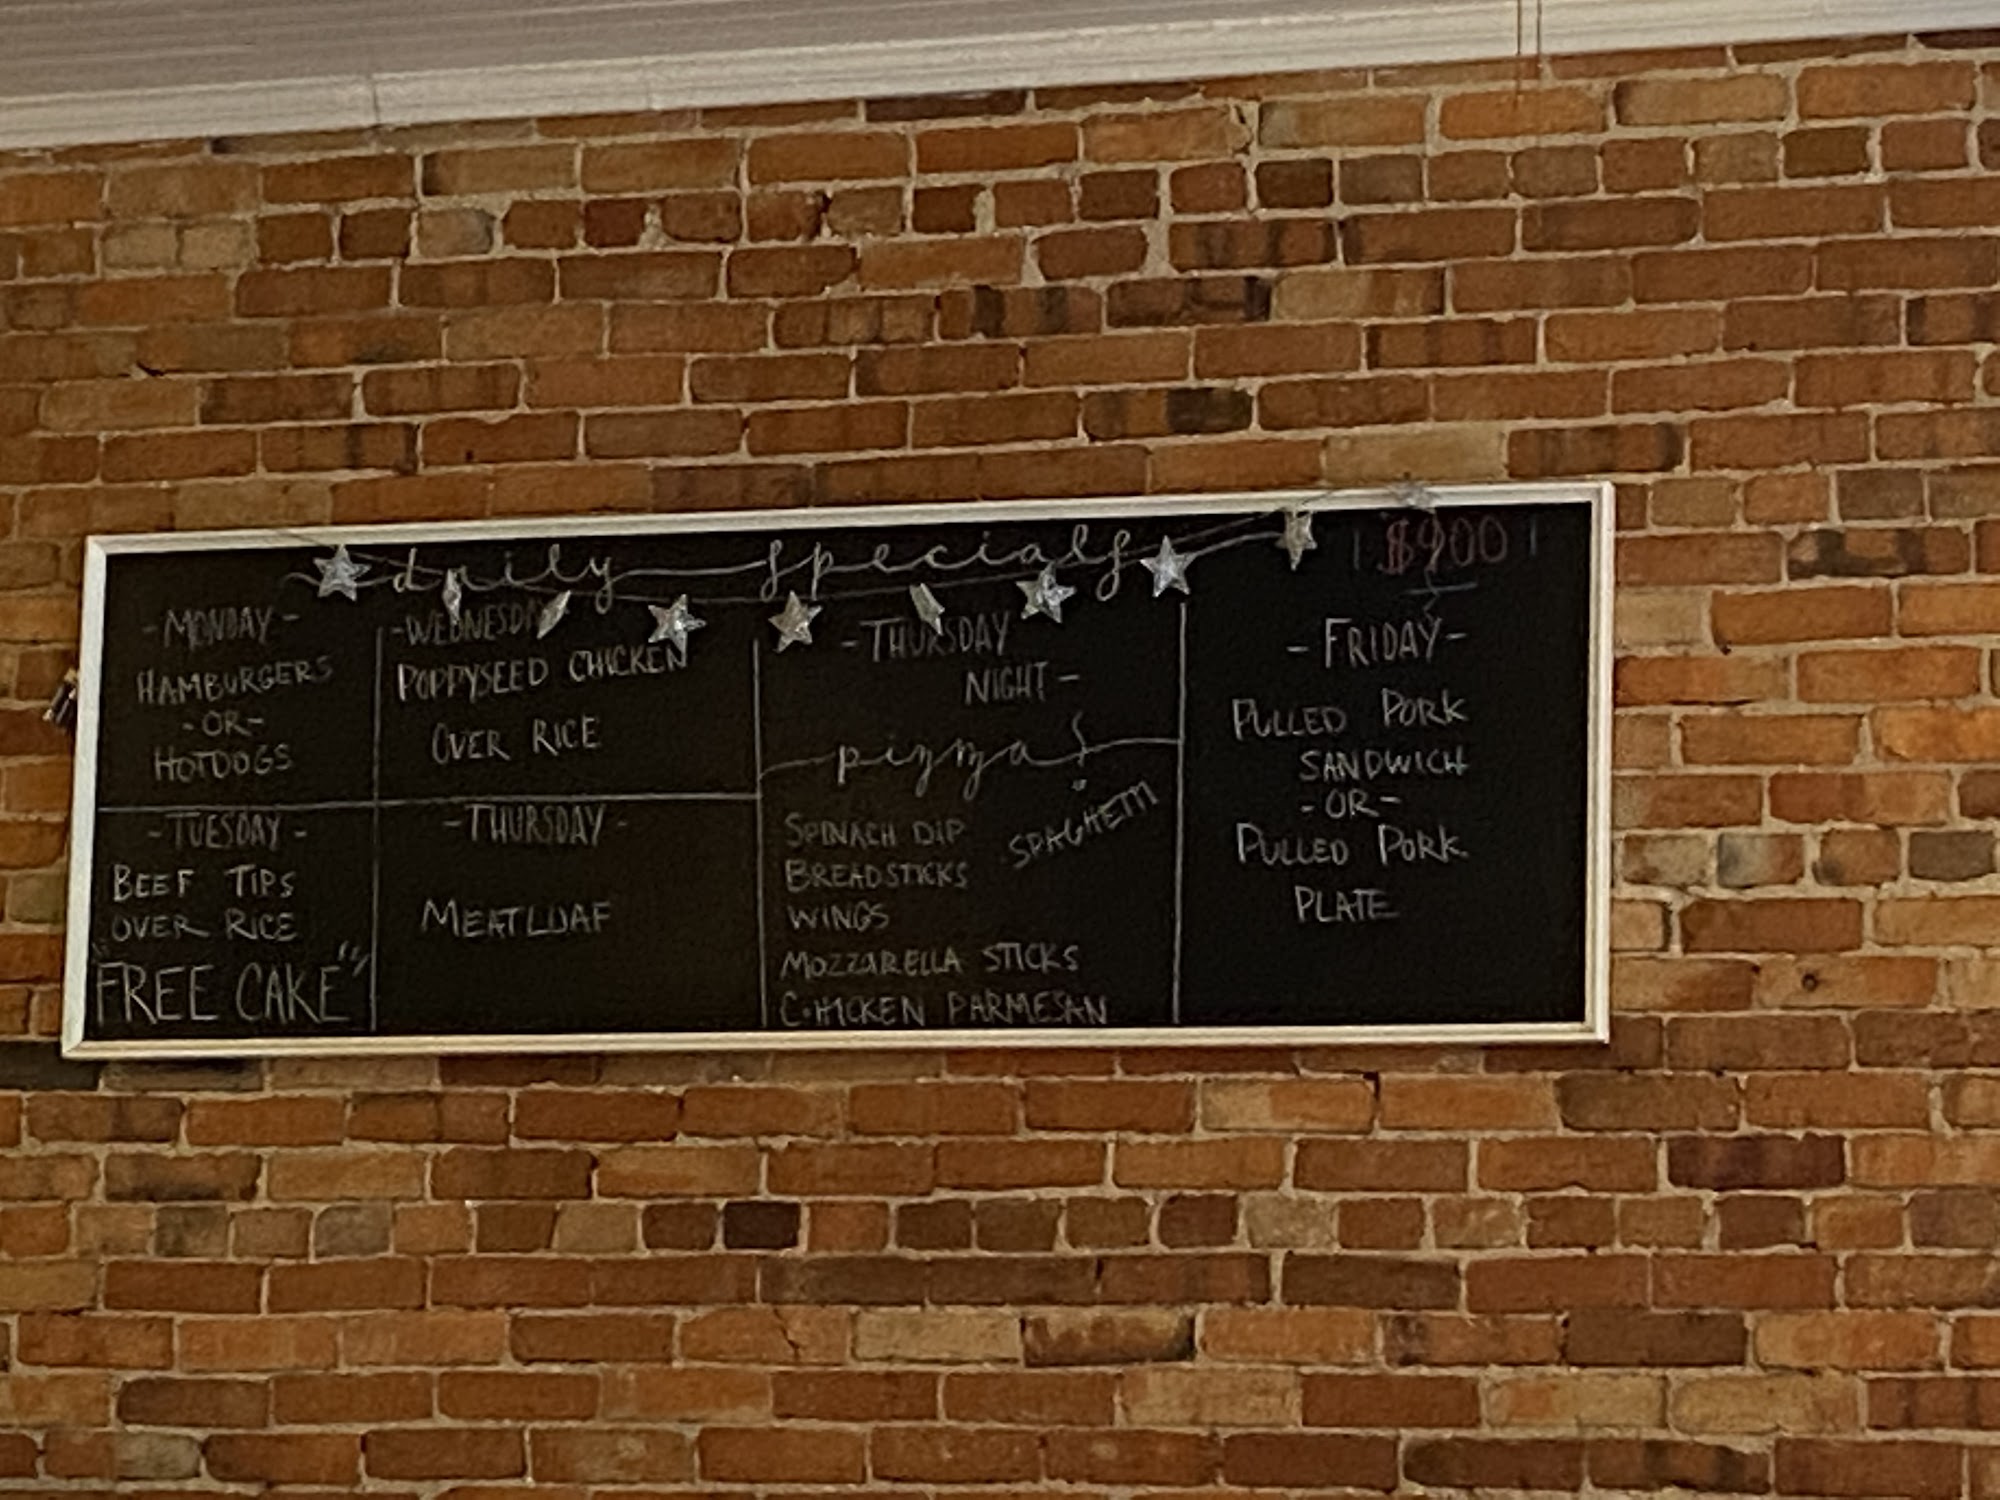 daily specials
$900
- MONDAY -
HAMBURGERS
- OR -
HOTDOGS
- TUESDAY -
BEEF TIPS
OVER RICE
"FREE CAKE"
- WEDNESDAY
POPPYSEED CHICKEN
OVER RICE
- THURSDAY -
MEATLOAF
- THURSDAY
NIGHT -
pizza
SPAGHETTI
SPINACH DIP
BREADSTICKS
WINGS
MOZZARELLA STICKS
CHICKEN PARMESAN
- FRIDAY -
PULLED PORK
SANDWICH
- OR -
PULLED PORK
PLATE